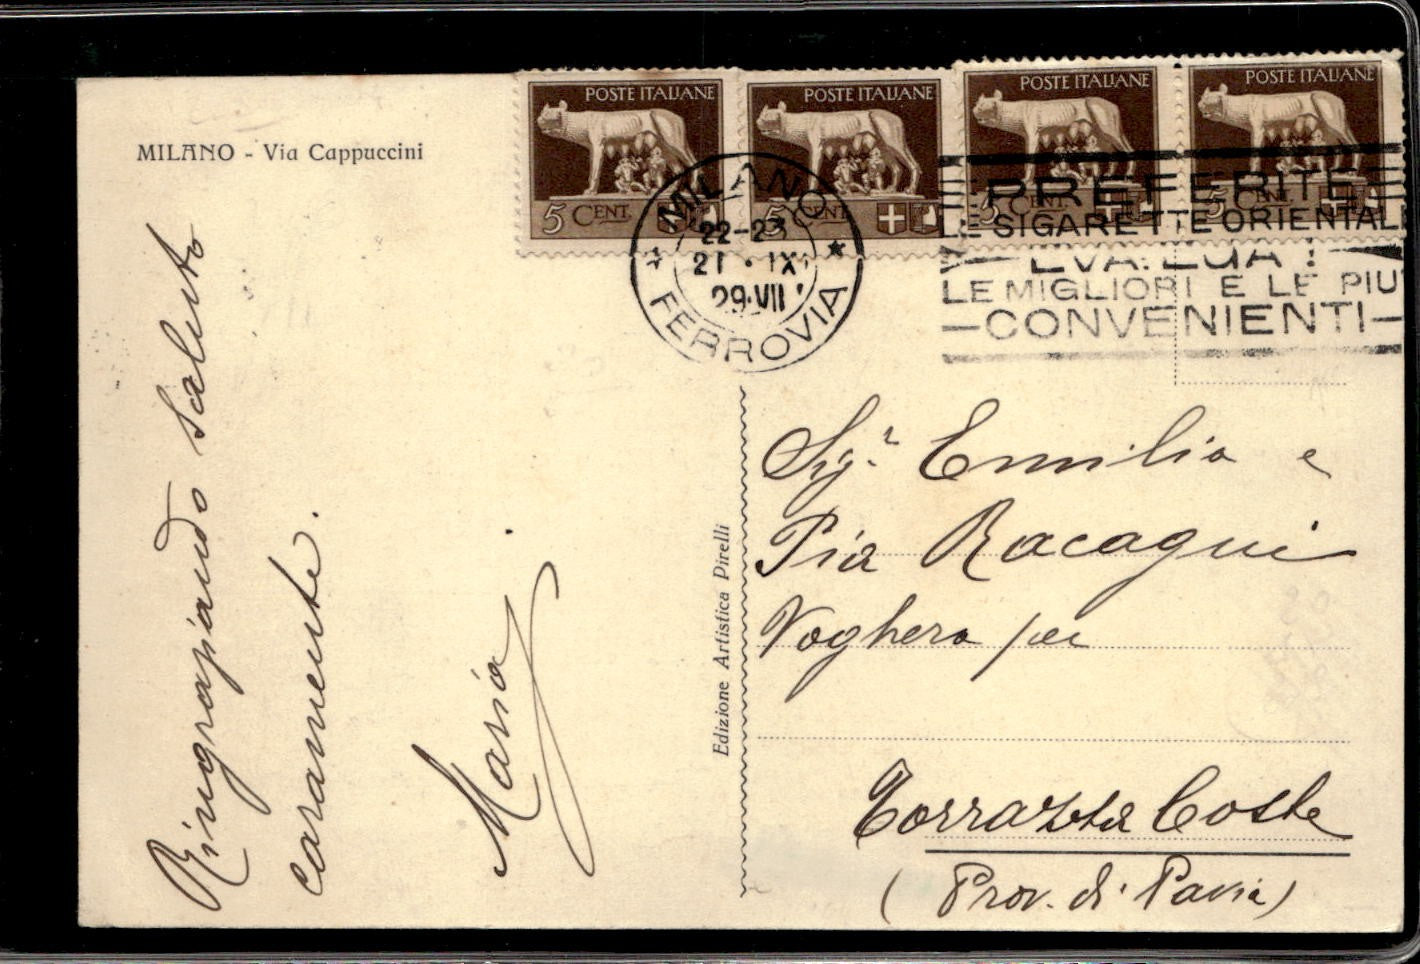 MILANO - Via Cappuccini
POSTE ITALIANE
5 CENT.
POSTE ITALIANE
5 CENT.
POSTE ITALIANE
5 CENT.
POSTE ITALIANE
5 CENT.
MILANO
22-23
21 · IX
29·VII
FERROVIA
PREFERITE
LE SIGARETTE ORIENTALI
EVA.
LE MIGLIORI E LE PIU'
CONVENIENTI
Ringraziando saluto
caramente.
Maria
Edizione Artistica Pirelli
Sigr. Emilia e
Pia Racagni
Voghera per
Torrazza Coste
(Prov. di Pavia)